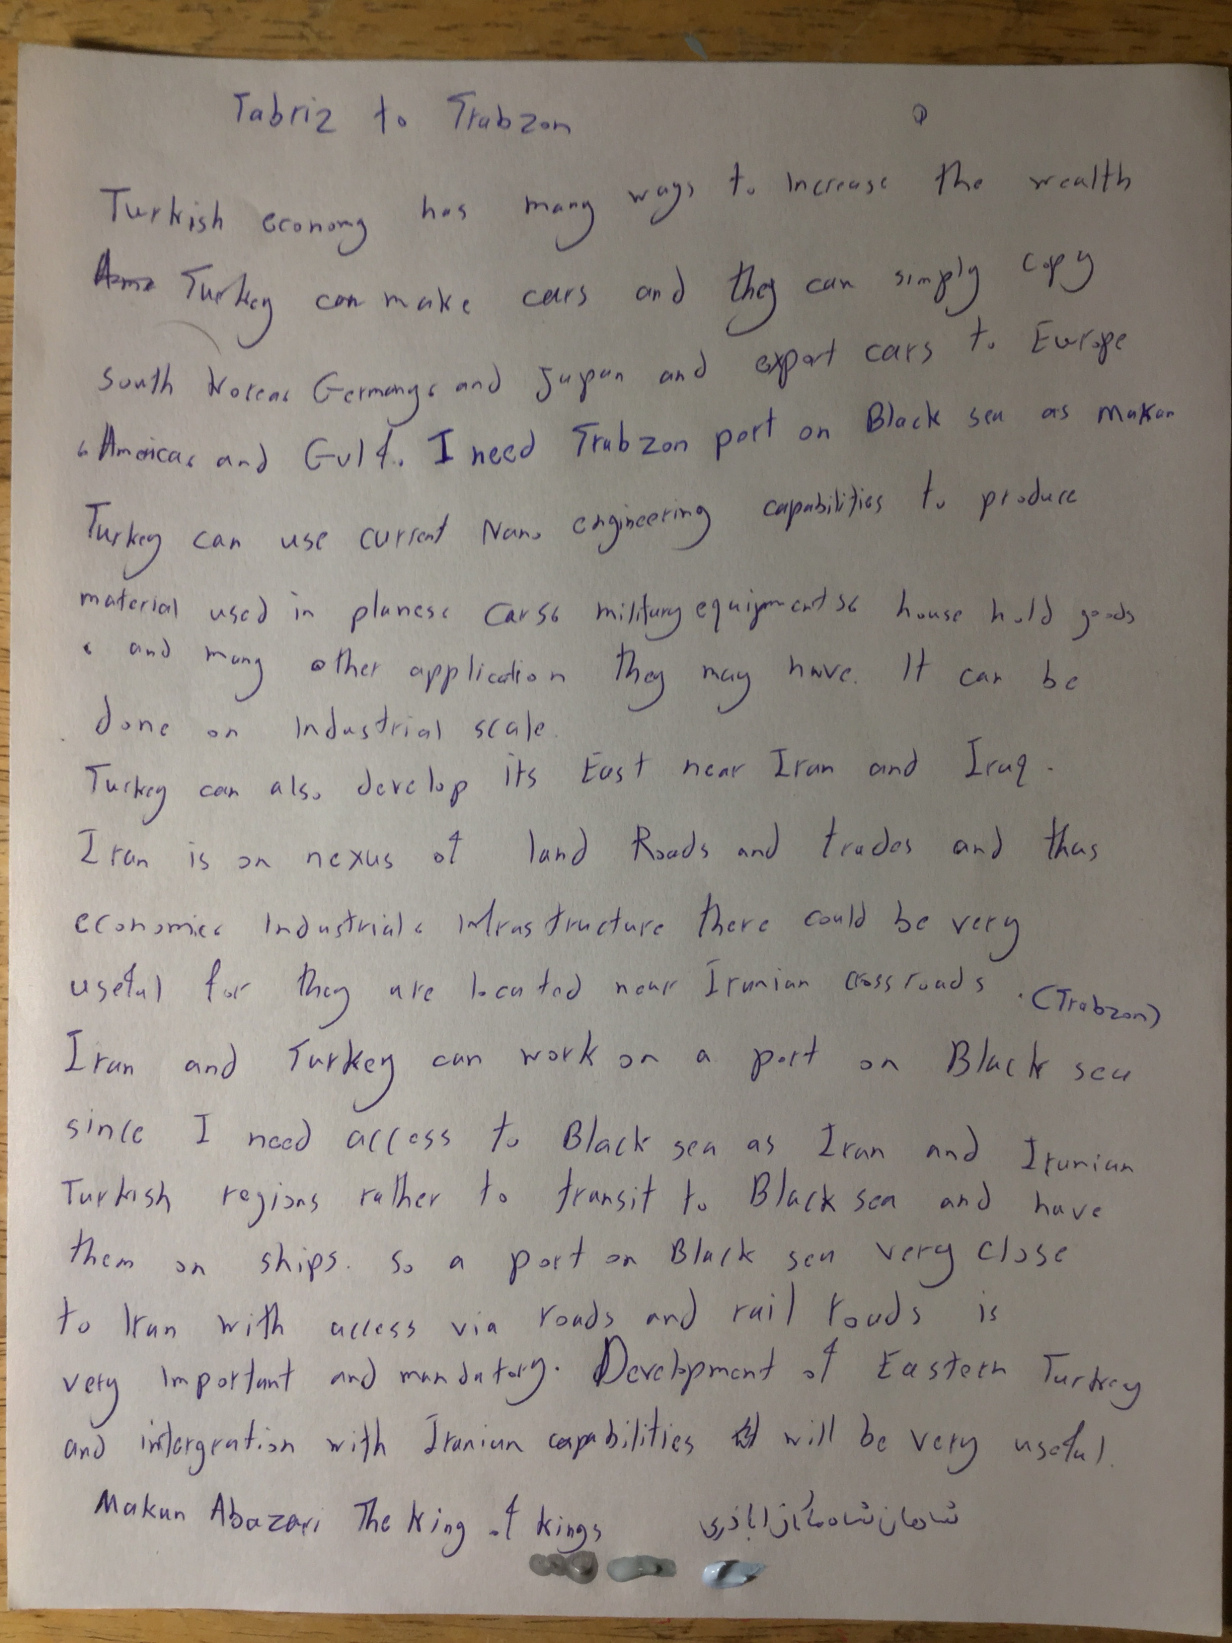 Tabriz to Trabzon
Turkish economy has many ways to increase the wealth
Turkey can make cars and they can simply copy
South Korea، Germany، and Japan and export cars to Europe
، America، and Gulf. I need Trabzon port on Black sea as Makan
Turkey can use current Nano engineering capabilities to produce
material used in planes، cars، military equipments، house hold goods
، and many other application they may have. It can be
done on industrial scale.
Turkey can also develop its East near Iran and Iraq.
Iran is on nexus of land Roads and trades and thus
economic، industrial، infrastructure there could be very
useful for they are located near Iranian crossroads. (Trabzon)
Iran and Turkey can work on a port on Black sea
since I need access to Black sea as Iran and Iranian
Turkish regions rather to transit to Black sea and have
them on ships. So a port on Black sea very close
to Iran with access via roads and rail roads is
very important and mandatory. Development of Eastern Turkey
and intergration with Iranian capabilities will be very useful.
Makan Abazari The King of kings شاهان شاه ماکان اباذری